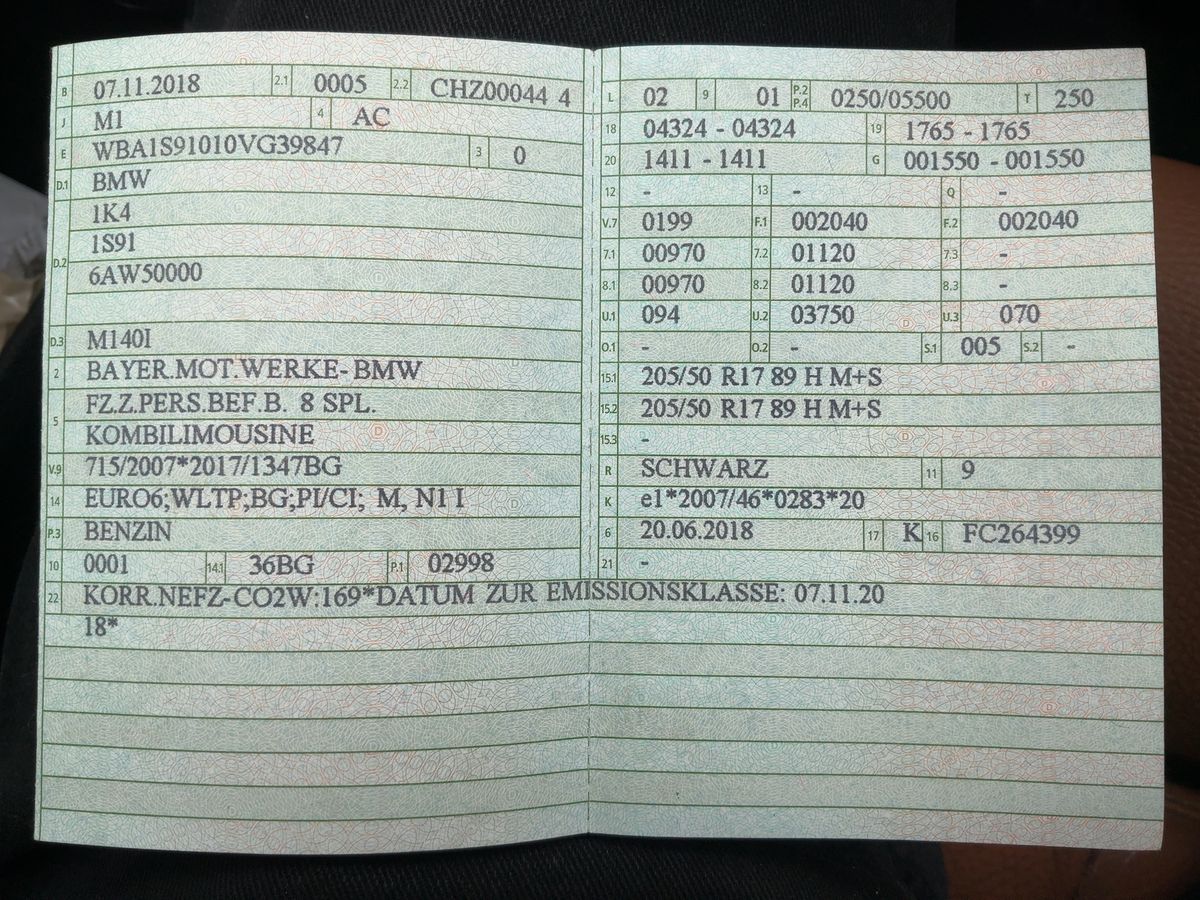 B 07.11.2018 2.1 0005 2.2 CHZ00044 4
J M1 4 AC
E WBA1S91010VG39847 3 0
D.1 BMW
D.2 1K4
1S91
6AW50000
D.3 M140I
2 BAYER.MOT.WERKE-BMW
5 FZ.Z.PERS.BEF.B. 8 SPL.
KOMBILIMOUSINE
V.9 715/2007*2017/1347BG
14 EURO6;WLTP;BG;PI/CI; M, N1 I
P.3 BENZIN
10 0001 14.1 36BG P.1 02998
L 02 9 01 P.2 P.4 0250/05500 T 250
18 04324 - 04324 19 1765 - 1765
20 1411 - 1411 G 001550 - 001550
12 - 13 - Q -
V.7 0199 F.1 002040 F.2 002040
7.1 00970 7.2 01120 7.3 -
8.1 00970 8.2 01120 8.3 -
U.1 094 U.2 03750 U.3 070
O.1 - O.2 - S.1 005 S.2 -
15.1 205/50 R17 89 H M+S
15.2 205/50 R17 89 H M+S
15.3 -
R SCHWARZ 11 9
K e1*2007/46*0283*20
6 20.06.2018 17 K 16 FC264399
21 -
22 KORR.NEFZ-CO2W:169*DATUM ZUR EMISSIONSKLASSE: 07.11.20
18*